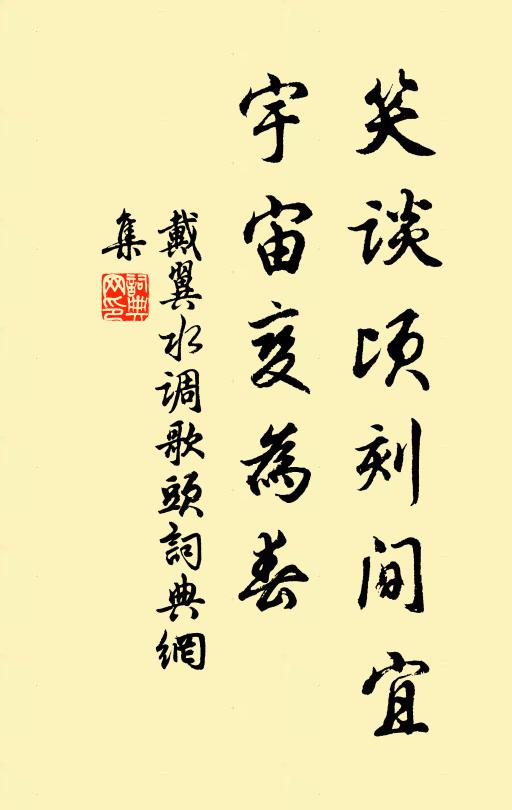 笑谈顷刻间宜
宇宙变為春
戴翼水调歌頭詞典網
集
詞典
网印